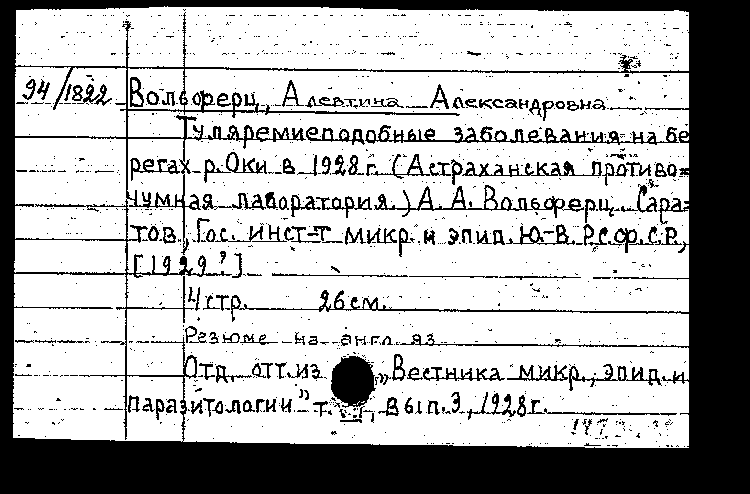 94/1822 Вольферц, Алевтина Александровна
Туляремиеподобные заболевания на бе
регах р. Оки в 1928 г. (Астраханская противо=
чумная лаборатория.) А. А. Вольферц. Сара=
тов, Гос. инст-т микр. и эпид. Ю.-В. Р.С.Ф.С.Р.,
[1929?]
4 стр. 26 см.
Резюме на англ. яз.
Отд. отт. из „Вестника микр., эпид. и
паразитологии" т. , вып. 3, 1928 г.